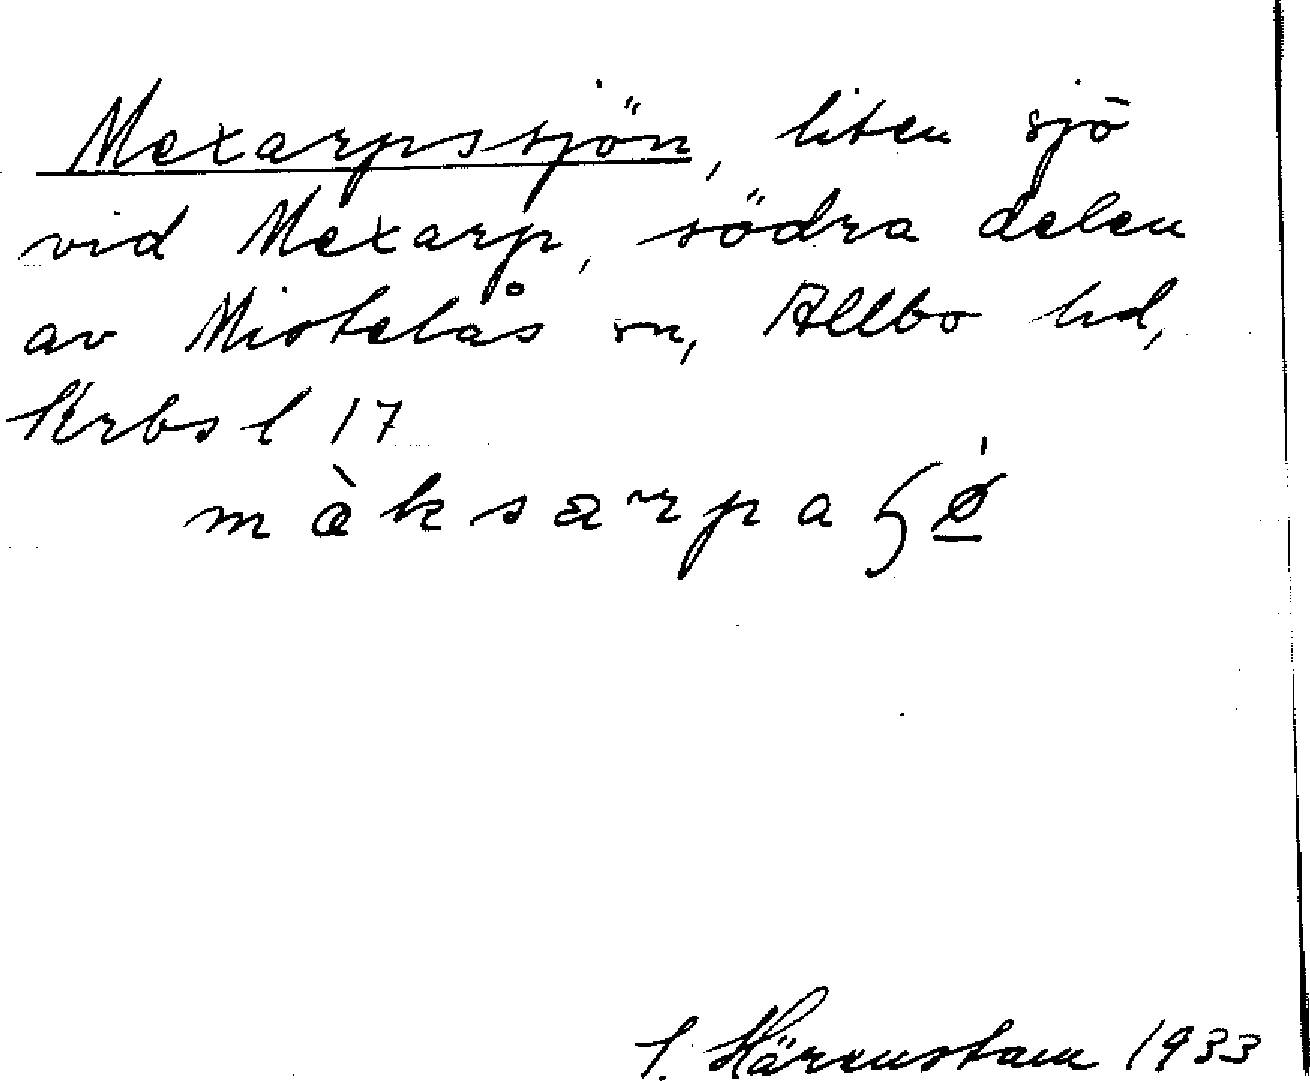 Mexarpssjön, liten sjö
vid Mexarp, södra delen
av Mistelås sn, Allbo hd,
Krbs l 17
mæ̀ksarpaʂǿ̠
S. Härenstam 1933